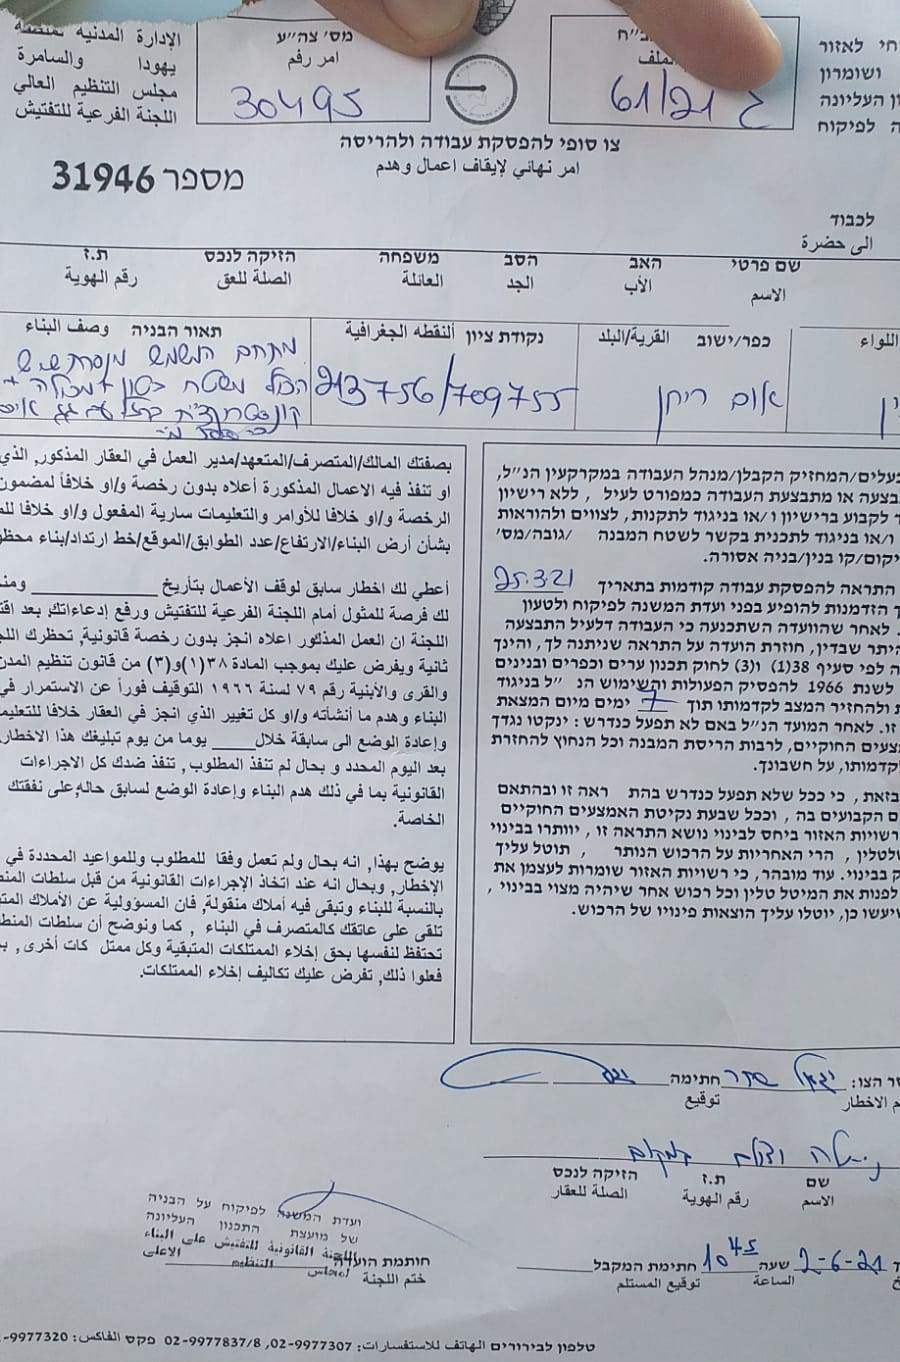 الإدارة المدنيه لمنطقة
يهودا والسامرة
مجلس التنظيم العالي
اللجنة الفرعية للتفتيش
מס' צה״ע
امر رقم
30495
الملف
61/21
לאזור
ושומרון
העליונה
לפיקוח
צו סופי להפסקת עבודה ולהריסה
امر نهائي لإيقاف اعمال وهدم
מספר 31946
לכבוד
الى حضرة
שם פרטי האב הסב משפחה הזיקה לנכס ת.ז
الاسم الأب الجد العائلة الصلة للعق رقم الهوية
اللواء
כפר/ישוב القرية/البلد
אום ריחן
נקודת ציון ألنقطه الجغرافية
213756/709755
תאור הבניה وصف البناء
מתחם המשמש
הכולל משטח בטון + מכולה +
קונסטרוקציית ברזל עם גג
בעלים/המחזיק הקבלן/מנהל העבודה במקרקעין הנ״ל,
בצעה או מתבצעת העבודה כמפורט לעיל , ללא רישיון
לקבוע ברישיון ו/או בניגוד לתקנות, לצווים ולהוראות
ו/או בניגוד לתכנית בקשר לשטח המבנה /גובה/מס'
יקום/קו בנין/בניה אסורה.
התראה להפסקת עבודה קודמות בתאריך 25.3.21
הזדמנות להופיע בפני ועדת המשנה לפיקוח ולטעון
לאחר שהוועדה השתכנעה כי העבודה דלעיל התבצעה
היתר שבדין, חוזרת הועדה על התראה שניתנה לך, והינך
לפי סעיף 38(1) ו(3) לחוק תכנון ערים וכפרים ובנינים
לשנת 1966 להפסיק הפעולות והשימוש הנ ״ל בניגוד
ולהחזיר המצב לקדמותו תוך 7 ימים מיום המצאת
זו. לאחר המועד הנ״ל באם לא תפעל כנדרש : ינקטו נגדך
הצעים החוקיים, לרבות הריסת המבנה וכל הנחוץ להחזרת
קדמותו, על חשבונך.
בזאת , כי ככל שלא תפעל כנדרש בהת ראה זו ובהתאם
הקבועים בה , וככל שבעת נקיטת האמצעים החוקיים
רשויות האזור ביחס לבינוי נושא התראה זו , יוותרו בבינוי
טלטלין , הרי האחריות על הרכוש הנותר , תוטל עליך
בבינוי. עוד מובהר, כי רשויות האזור שומרות לעצמן את
לפנות את המיטל טלין וכל רכוש אחר שיהיה מצוי בבינוי ,
יעשו כן, יוטלו עליך הוצאות פינויו של הרכוש.
بصفتك المالك/المتصرف/المتعهد/مدير العمل في العقار المذكور, الذي
او تنفذ فيه الاعمال المذكورة أعلاه بدون رخصة و/او خلافاً لمضمون
الرخصة و/او خلافا للأوامر والتعليمات سارية المفعول و/او خلافا
بشأن أرض البناء/الارتفاع/عدد الطوابق/الموقع/خط ارتداد/بناء محظو
أعطي لك اخطار سابق لوقف الأعمال بتأريخ ________ ومن
لك فرصة للمثول أمام اللجنة الفرعية للتفتيش ورفع إدعاءاتك, بعد
اللجنة ان العمل المذكور اعلاه انجز بدون رخصة قانونية, تحظرك
ثانية ويفرض عليك بموجب المادة ٣٨(١)و(٣) من قانون تنظيم المدن
والقرى والأبنية رقم ٧٩ لسنة ١٩٦٦ التوقيف فوراً عن الاستمرار في
البناء وهدم ما أنشأته و/او كل تغيير الذي انجز في العقار خلافا للتعليم
وإعادة الوضع الى سابقة خلال____ يوما من يوم تبليغك هذا الاخطار
بعد اليوم المحدد و بحال لم تنفذ المطلوب , تنفذ ضدك كل الاجراءات
القانونية بما في ذلك هدم البناء وإعادة الوضع لسابق حاله,على نفقتك
الخاصة.
يوضح بهذا, انه بحال ولم تعمل وفقا للمطلوب وللمواعيد المحددة في
الإخطار, وبحال انه عند اتخاذ الإجراءات القانونية من قبل سلطات
بالنسبة للبناء وتبقى فيه أملاك منقولة, فان المسؤولية عن الأملاك
تلقى على عاتقك كالمتصرف في البناء , كما ونوضح أن سلطات
تحتفظ لنفسها بحق إخلاء الممتلكات المتبقية وكل ممتل كات أخرى,
فعلوا ذلك, تفرض عليك تكاليف إخلاء الممتلكات.
הצו: יגאל חתימה
الاخطار توقيع
במקום
שם ת.ז הזיקה לנכס
الاسم رقم الهوية الصلة للعقار
ועדת המשנה לפיקוח על הבניה
של מועצת התכנון העליונה
اللجنة القانونية للتفتيش على البناء
لمجلس التنظيم الاعلى
חותמת הועדה
ختم اللجنة
2-6-21 שעה 10 45 חתימת המקבל
الساعة توقيع المستلم
טלפון לבירורים الهاتف للاستفسارات: 02-9977307, 02-9977837/8 פקס الفاكس: 9977320-